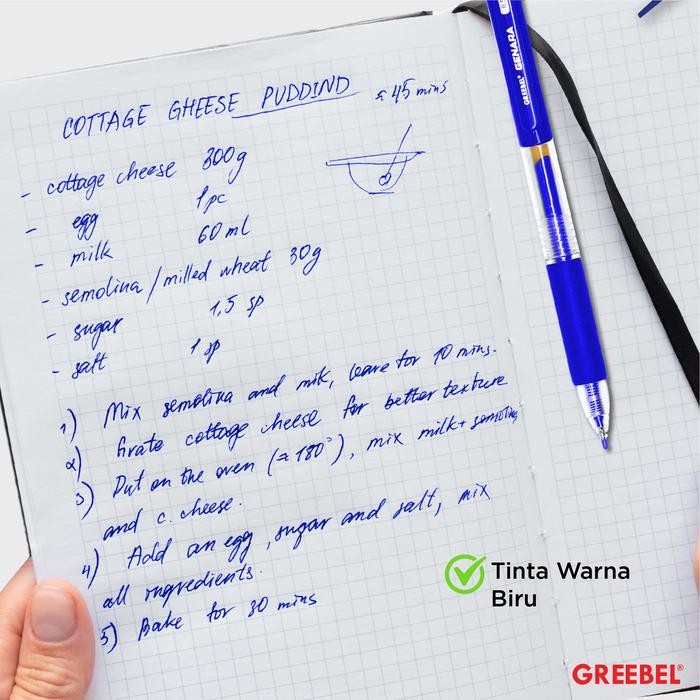 COTTAGE GHEESE PUDDIND ≈ 45 mins
- cottage cheese 300g
- egg 1 pc
- milk 60 ml
- semolina / milled wheat 30g
- sugar 1,5 sp
- salt 1 sp
1) Mix semolina and mik, leave for 10 mins.
2) Grate cottage cheese for better texture
3) Put on the oven (≈ 180°), mix milk + semolina
and c. cheese.
4) Add an egg, sugar and salt, mix
all ingredients.
5) Bake for 30 mins
GREEBEL GENARA
Tinta Warna
Biru
GREEBEL®